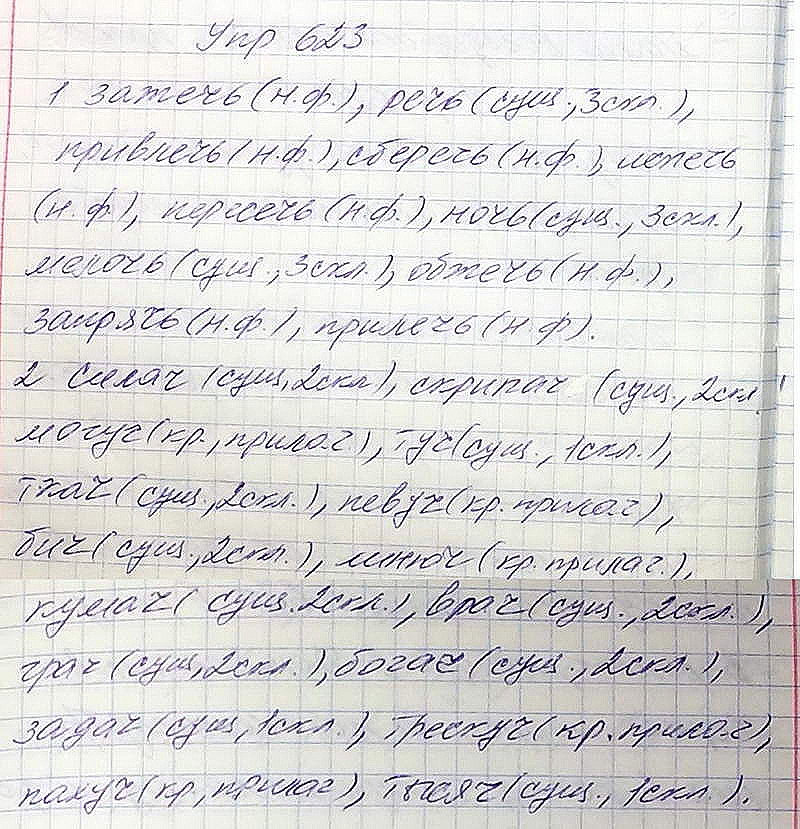 Упр 623
1 зажечь (н.ф.), речь (сущ., 3скл.),
привлечь (н.ф.), сберечь (н.ф.), лежечь
(н.ф.), пересечь (н.ф.), ночь (сущ., 3скл.),
мелочь (сущ., 3скл.), обжечь (н.ф.),
запрячь (н.ф.), прилечь (н.ф).
2 Силач (сущ, 2скл), скрипач (сущ., 2скл.
могуч (кр., прилаг), туч (сущ., 1скл.),
ткач (сущ., 2скл.), певуч (кр. прилаг),
бич (сущ., 2скл.), (кр. прилаг.),
кумач (сущ. 2скл.), врач (сущ., 2скл.),
грач (сущ, 2скл.), богач (сущ., 2скл.),
задач (сущ, 1скл.), трескуч (кр. прилаг),
пахуч (кр, прилаг), тысяч (сущ., 1скл.).